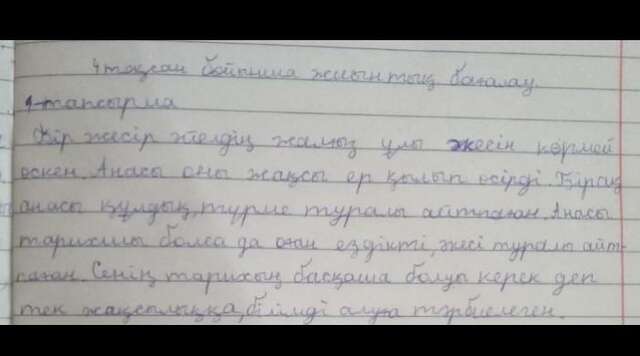 4 тоқсан бойынша жиынтық бағалау.
1-тапсырма
Бір жесір әйелдің жалғыз ұлы әкесін көрмей
өскен. Анасы оны жақсы ер қылып өсірді. Бірақ
анасы құлдық, түрме туралы айтпаған. Анасы
тарихшы болса да оған ездікті, әкесі туралы айт-
паған. Сенің тарихың басқаша болуы керек деп
тек жақсылыққа, білімді алуға тәрбиелеген.